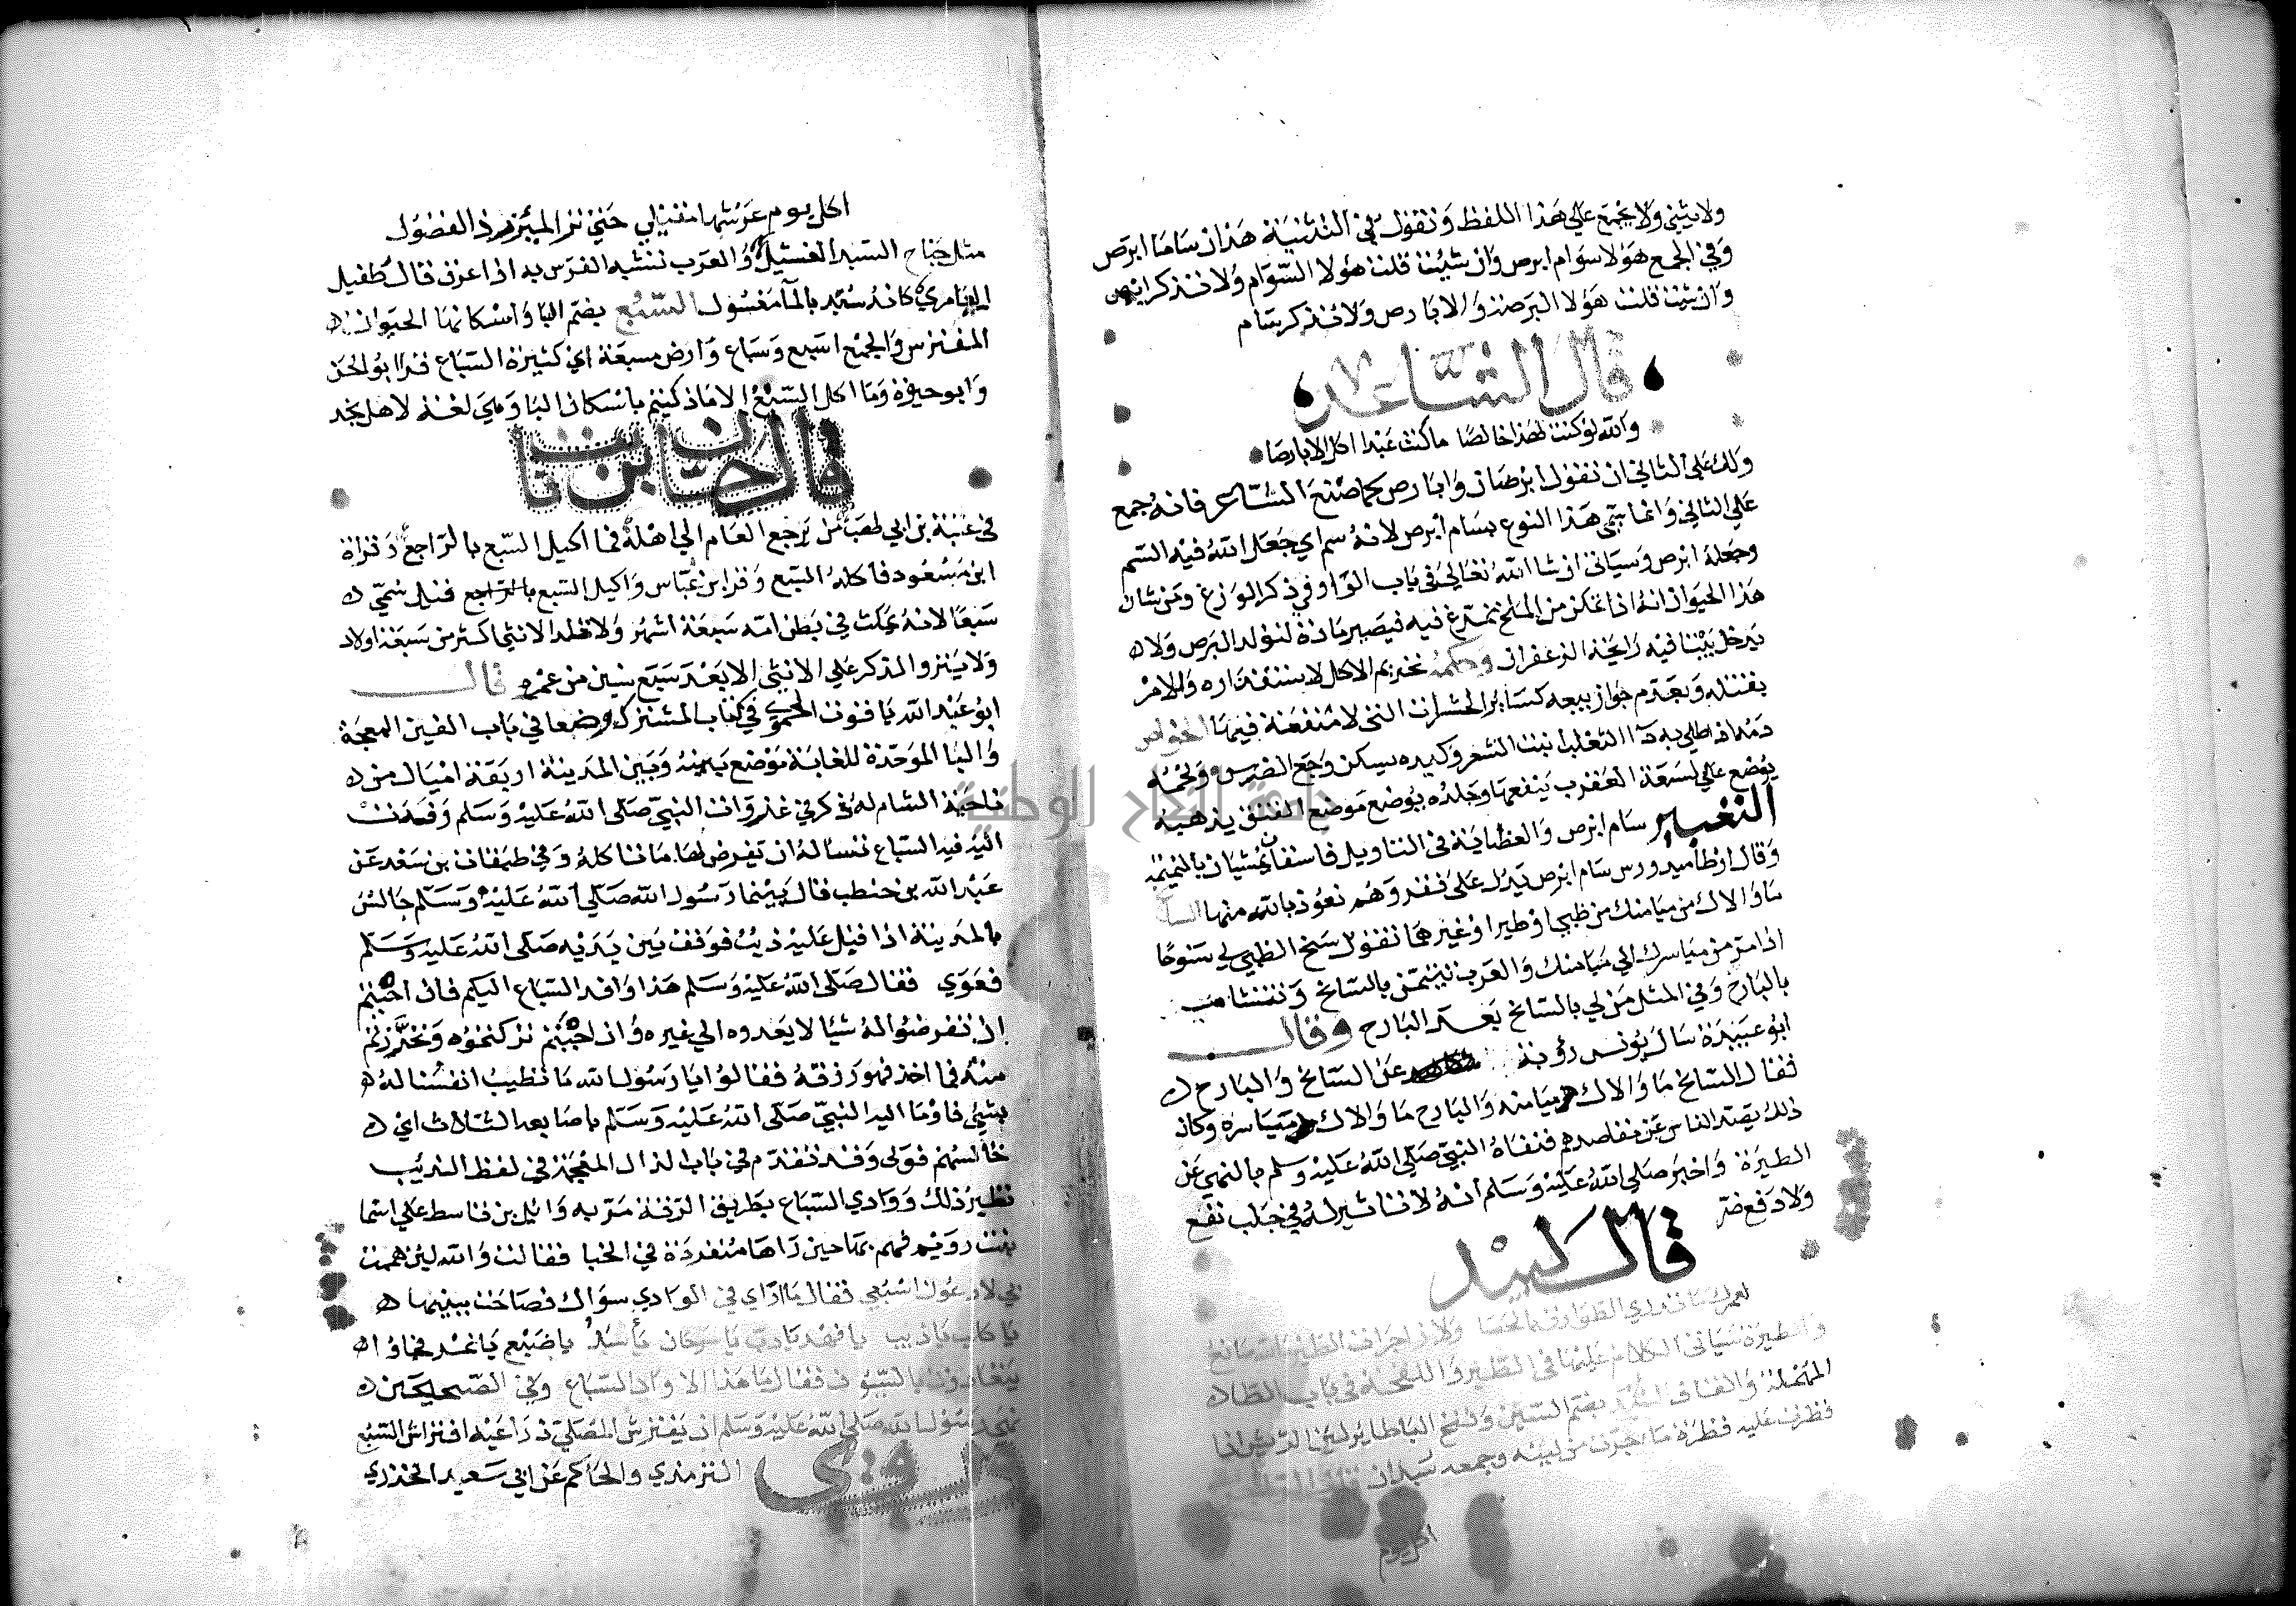 ولا يثني ولا يجمع علي هذا اللفظ وتقول في التثنية هذان ساما ابرص
وفي الجمع هولا سوام ابرص وان شيت قلت هولا السوام ولا تذكر ابرص
وان شيت قلت هولا البرصة والابارص ولا تذكر سام
قال الشاعر
والله لو كنت لهذا خالصا ما كنت عبدا اكل الابارصا
ولك علي الثاني ان تقول ابرصان وابارص كما صنع الشاعر فانه جمع
علي الثاني وانما سمي هذا النوع بسام ابرص لانه سم اي جعل الله فيه السم
وجعله ابرص وسياتي ان شا الله تعالي في باب الواو في ذكر الوزغ ومن شان
هذا الحيوان انه اذا تمكن من الملح تمرغ فيه فيصير مادة لتولد البرص ولا
يدخل بيتا فيه رايحة الزعفران وحكمه تحريم الاكل لاستقذاره والامر
بقتله وبعدم جواز بيعه كساير الحشرات التي لا منفعة فيها الخواص
دمه اذا طلي به دا الثعلب انبت الشعر وكبده يسكن وجع الضرس ولحمه
يوضع علي لسعة العقرب ينفعها وجلده يوضع موضع الفتق يذهبه
التعبير سام ابرص والعظاية في التاويل فاسقان يمشيان بالنميمة
وقال ارطاميدورس سام ابرص يدل علي فقر وهم نعوذ بالله منها
ما والاك من ميامنك من ظبي او طير او غيرهما تقول سنح الظبي لي سنوحا
اذا مر من مياسرك الي ميامنك والعرب تتيمن بالسانح وتتشام
بالبارح وفي المثل من لي بالسانح بعد البارح وقال
ابو عبيدة سال يونس روبة عن السانح والبارح
فقال السانح ما والاك ميامنه والبارح ما والاك مياسره وكان
ذلك يصد الناس عن مقاصدهم فنفاه النبي صلي الله عليه وسلم بالنهي عن
الطيرة واخبر صلي الله عليه وسلم انه لا تاثير له في جلب نفع
ولا دفع ضر
قال لبيد
لعمرك ما تدري الطوارق بالحصا ولا زاجرات الطير ما الله صانع
والطيرة سياتي الكلام عليها في الطير واللقحة في باب الطا
المهملة والقاف السبد بضم السين وفتح البا طاير لين الريش اذا
قطرت عليه قطرة ما جرت من لينه وجمعه سبدان
اكل يوم
اكل يوم عرشها مقيلي حتي تري الميزر ذا الفضول
مثل جناح السبد الغسيل والعرب تشبه الفرس به اذا عرق قال طفيل
العامري كانه سبد بالما مغسول السبع بضم البا واسكانها الحيوان
المفترس والجمع اسبع وسباع وارض مسبعة اي كثيرة السباع قرا ابو الحسن
وابو حيوة وما اكل السبع الا ما ذكيتم باسكان البا وهي لغة لاهل نجد
قال حسان بن ثابت
في عتبة بن ابي لهب من يرجع العام الي اهله فما اكيل السبع بالراجع وقراة
ابن مسعود فاكله السبع وقرا ابن عباس واكيل السبع بالراجع قيل سمي
سبعا لانه يمكث في بطن امه سبعة اشهر ولا تلد الانثي اكثر من سبعة اولاد
ولا ينزو الذكر علي الانثي الا بعد سبع سنين من عمره قال
ابو عبد الله ياقوت الحموي في كتاب المشترك وضعا في باب الغين المعجمة
والبا الموحدة للغابة موضع بينه وبين المدينة اربعة اميال من
ناحية الشام له ذكر في غزوات النبي صلي الله عليه وسلم وفدت
اليه فيه السباع تساله ان يفرض لها ما تاكله وفي طبقات بن سعد عن
عبد الله بن حنطب قال بينما رسول الله صلي الله عليه وسلم جالس
بالمدينة اذ اقبل عليه ذيب فوقف بين يديه صلي الله عليه وسلم
فعوي فقال صلي الله عليه وسلم هذا وافد السباع اليكم فان احببتم
ان تفرضوا له شيا لا يعدوه الي غيره وان احببتم تركتموه وتحرزتم
منه فما اخذ فهو رزقه فقالوا يا رسول الله ما تطيب انفسنا له
بشي فاوما اليه النبي صلي الله عليه وسلم باصابعه الثلاث اي
خالسهم فولي وقد تقدم في باب الذال المعجمة في لفظ الذيب
نظير ذلك ووادي السباع بطريق الرقة مر به وايل بن قاسط علي اسما
بنت رويم فهم بها حين راها منفردة في الخبا فقالت والله لين هممت
بي لادعون اسبعي فقال ما اري في الوادي سواك فصاحت ببنيها
يا كلب يا ذيب يا فهد يا دب يا سرحان يا اسد يا ضبع يا نمر فجاوا
يتعادون بالسيوف فقال ما هذا الا وادي السباع وفي الصحيحين
نهي رسول الله صلي الله عليه وسلم ان يفترش المصلي ذراعيه افتراش السبع
وروي الترمذي والحاكم عن ابي سعيد الخدري
جامعة النجاح الوطنية